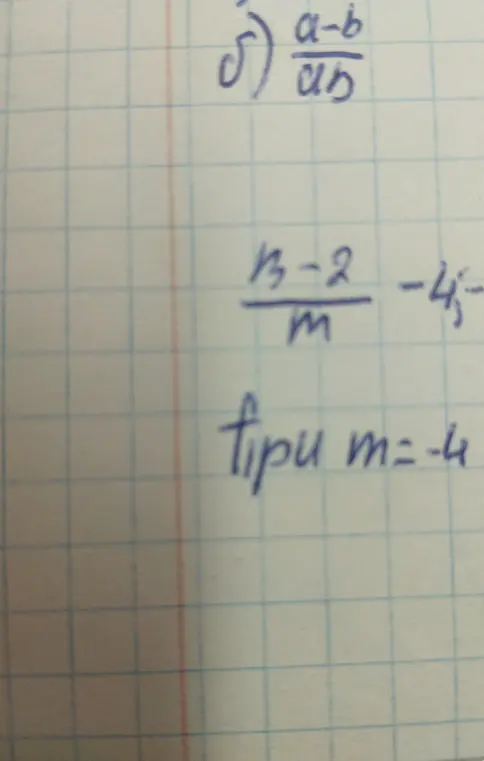 б) a-b
ab
n-2
m
-4;-
При m=-4